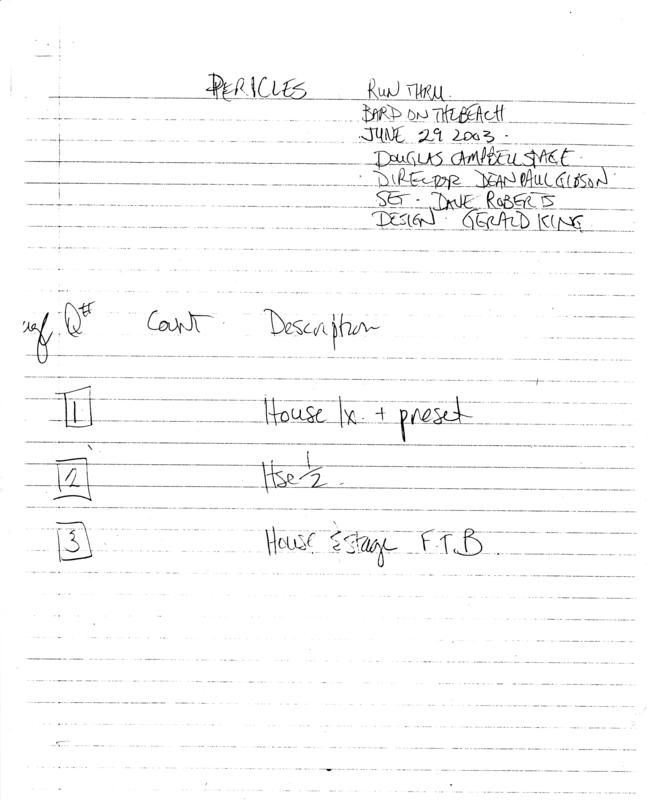 PERICLES RUN THRU.
BARD ON THE BEACH
JUNE 29 2003.
DOUGLAS CAMPBELL STAGE.
DIRECTOR DEAN PAUL GIBSON.
SET. DAVE ROBERTS
DESIGN. GERALD KING
Q# Count Description
1 House lx. + preset
2 Hse 1/2.
3 House & Stage F.T.B.